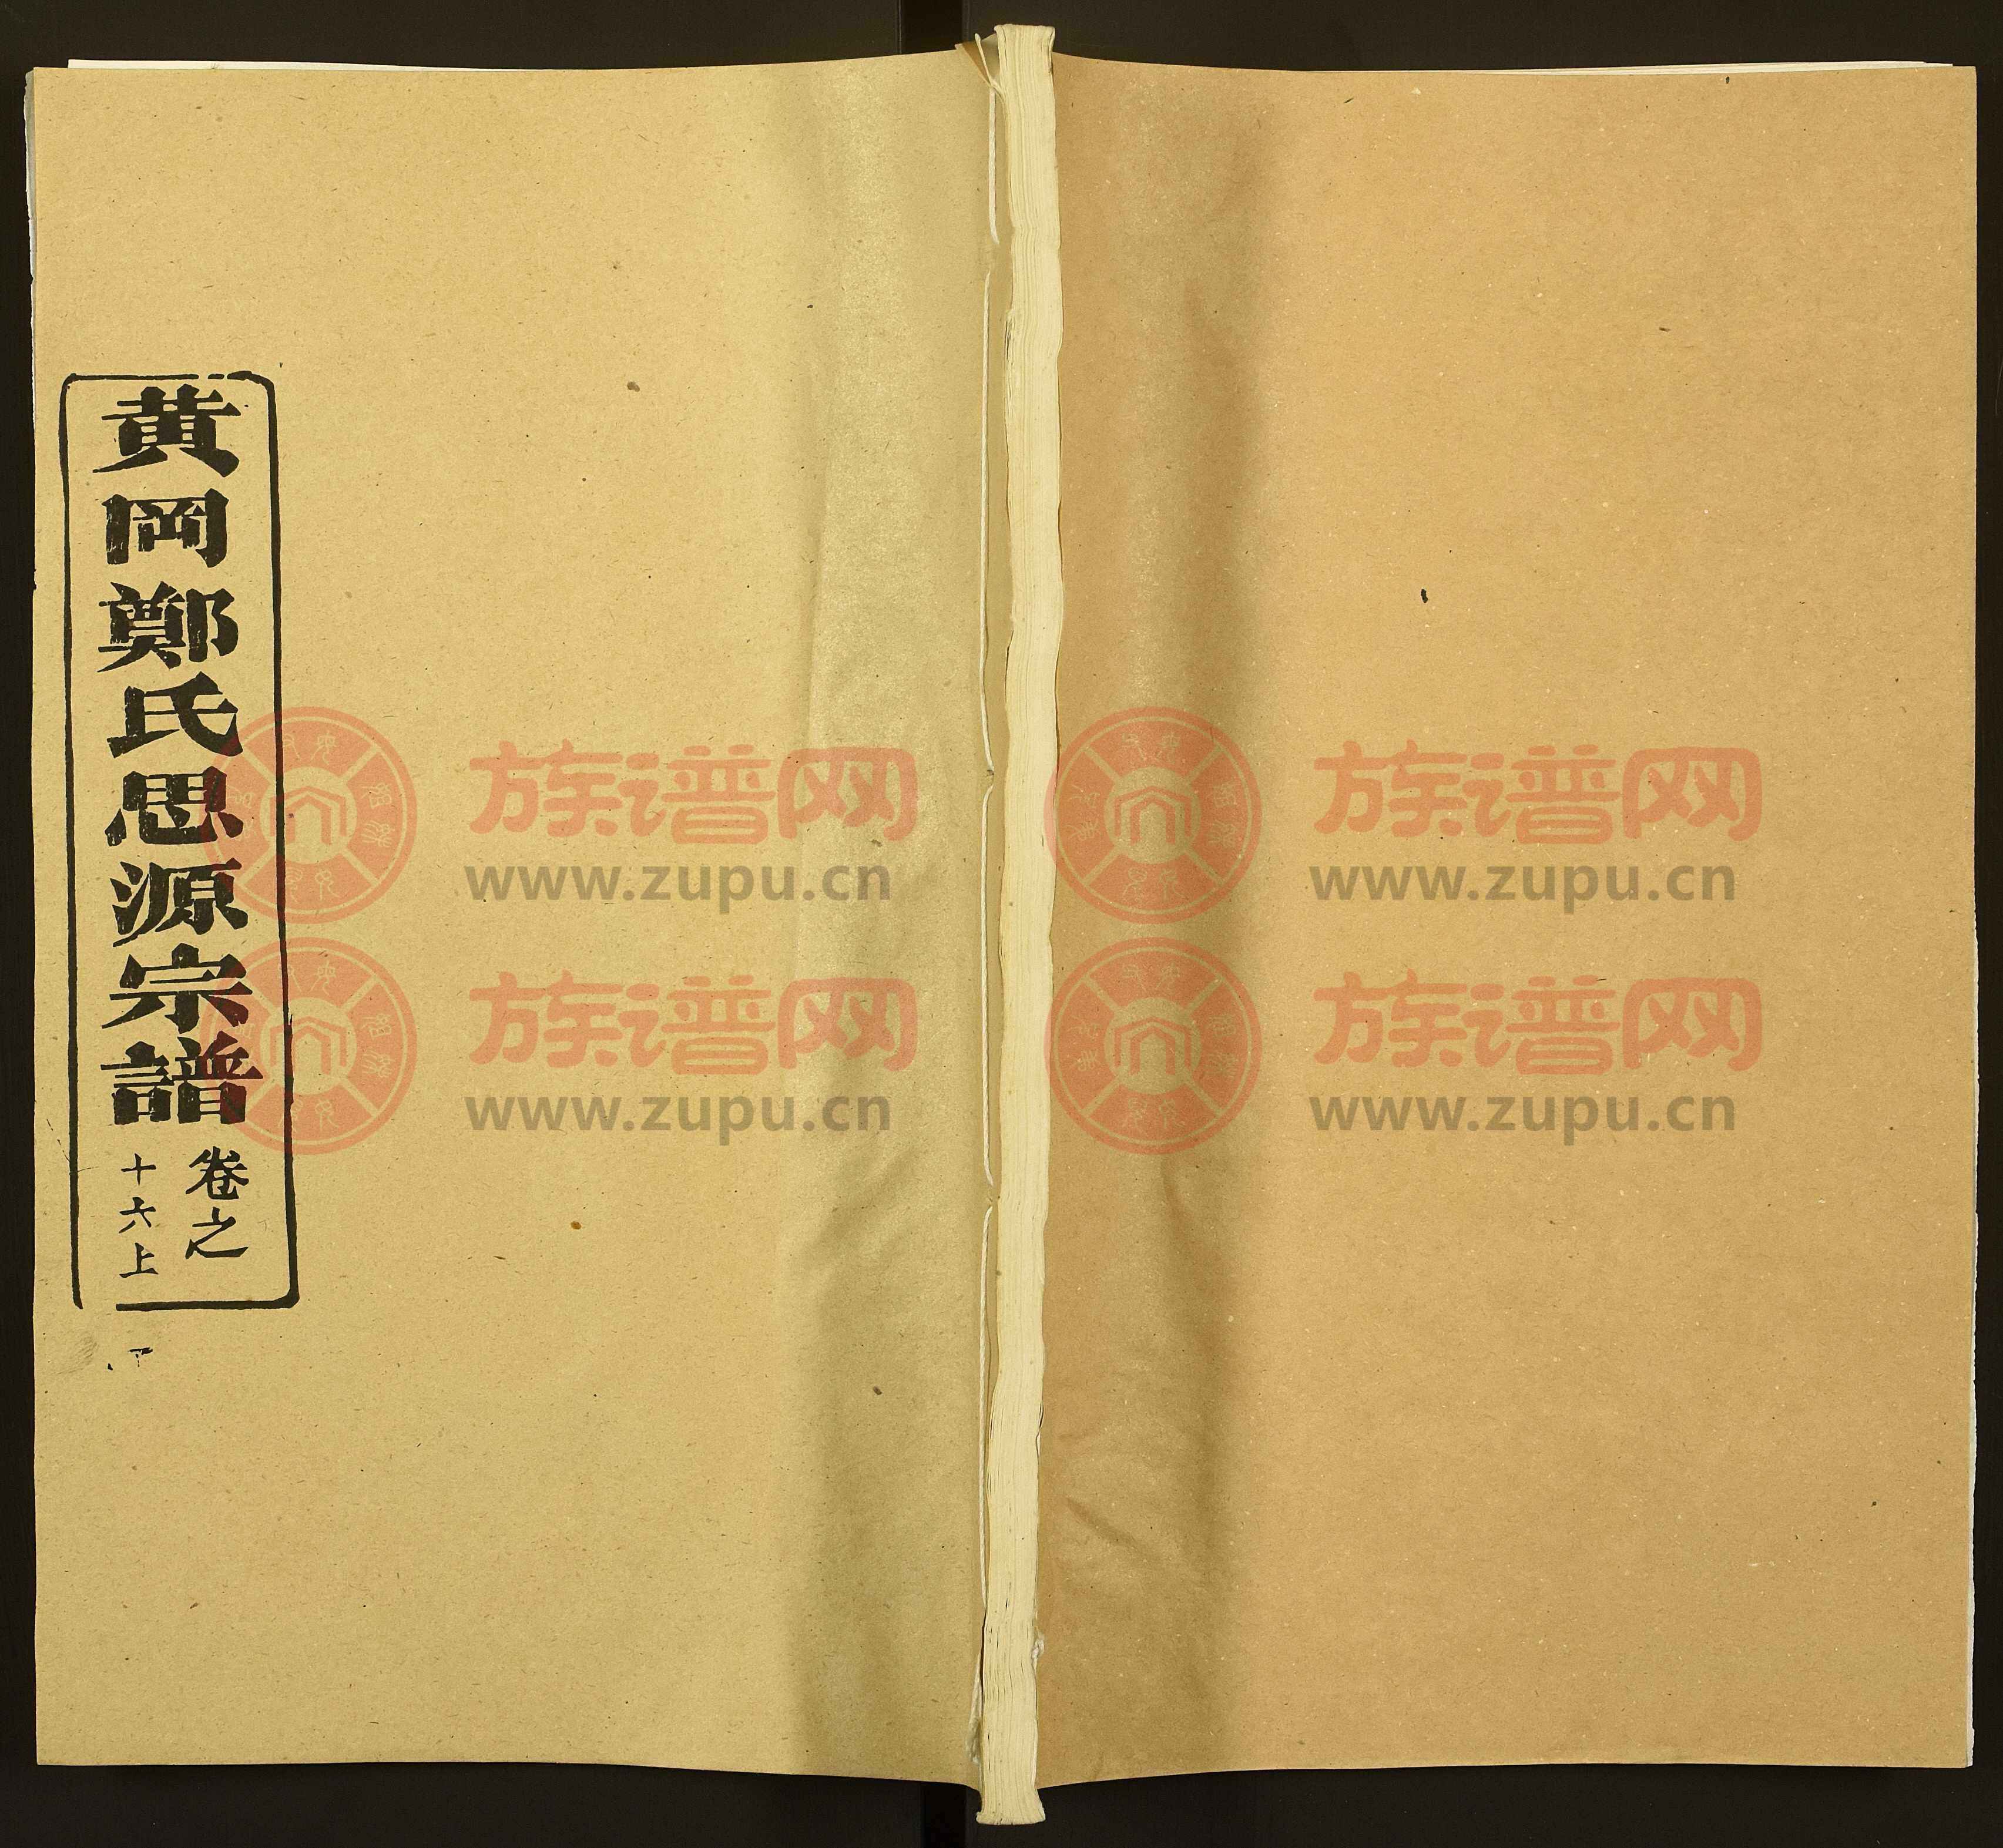 黄岡鄭氏思源宗譜
卷之
十六上
族谱网
www.zupu.cn
族谱网
www.zupu.cn
族谱网
www.zupu.cn
族谱网
www.zupu.cn